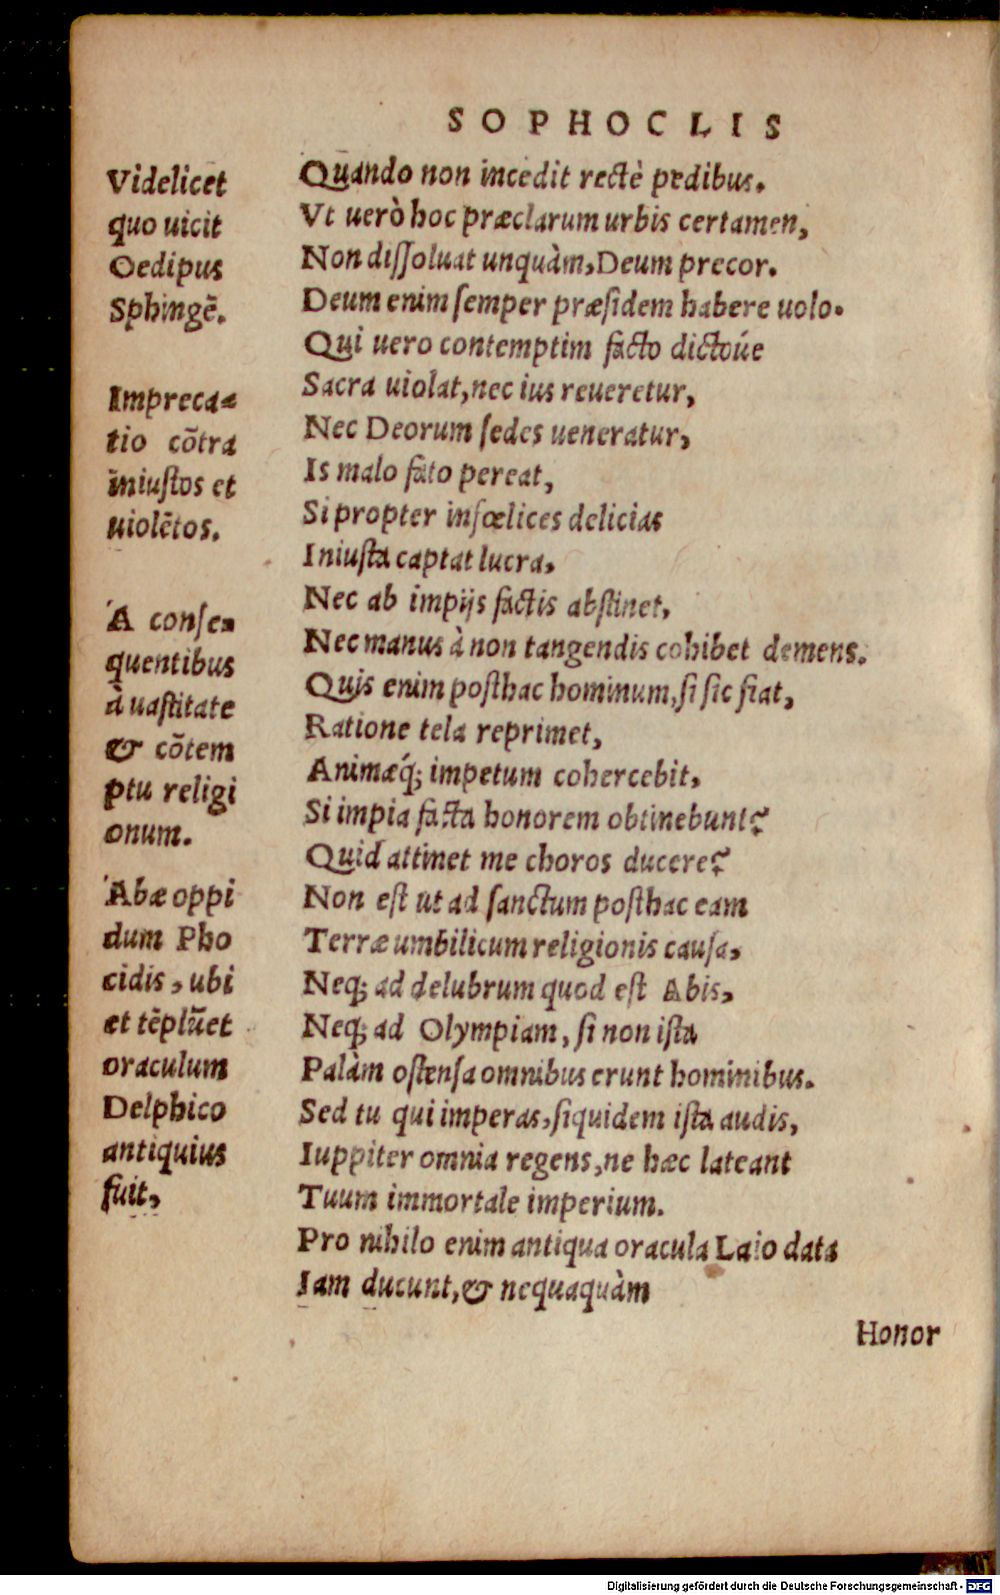 SOPHOCLIS
Videlicet
quo uicit
Oedipus
Sphingẽ.
Impreca-
tio cõtra
iniustos et
uiolẽtos.
A conse-
quentibus
à uastitate
& cõtem
ptu religi
onum.
Abæ oppi
dum Pho
cidis, ubi
et tẽplũ et
oraculum
Delphico
antiquius
fuit,
Quando non incedit rectè pedibus.
Vt uerò hoc præclarum urbis certamen,
Non dissoluat unquàm, Deum precor.
Deum enim semper præsidem habere uolo.
Qui uero contemptim facto dictóue
Sacra uiolat, nec ius reueretur,
Nec Deorum sedes ueneratur,
Is malo fato pereat,
Si propter infœlices delicias
Iniusta captat lucra,
Nec ab impijs factis abstinet,
Nec manus à non tangendis cohibet demens.
Quis enim posthac hominum, si sic fiat,
Ratione tela reprimet,
Animæq́; impetum cohercebit,
Si impia facta honorem obtinebunt?
Quid attinet me choros ducere?
Non est ut ad sanctum posthac eam
Terræ umbilicum religionis causa,
Neq; ad delubrum quod est Abis,
Neq; ad Olympiam, si non ista
Palàm ostensa omnibus erunt hominibus.
Sed tu qui imperas, siquidem ista audis,
Iuppiter omnia regens, ne hæc lateant
Tuum immortale imperium.
Pro nihilo enim antiqua oracula Laio data
Iam ducunt, & nequaquàm
Honor
Digitalisierung gefördert durch die Deutsche Forschungsgemeinschaft - DFG